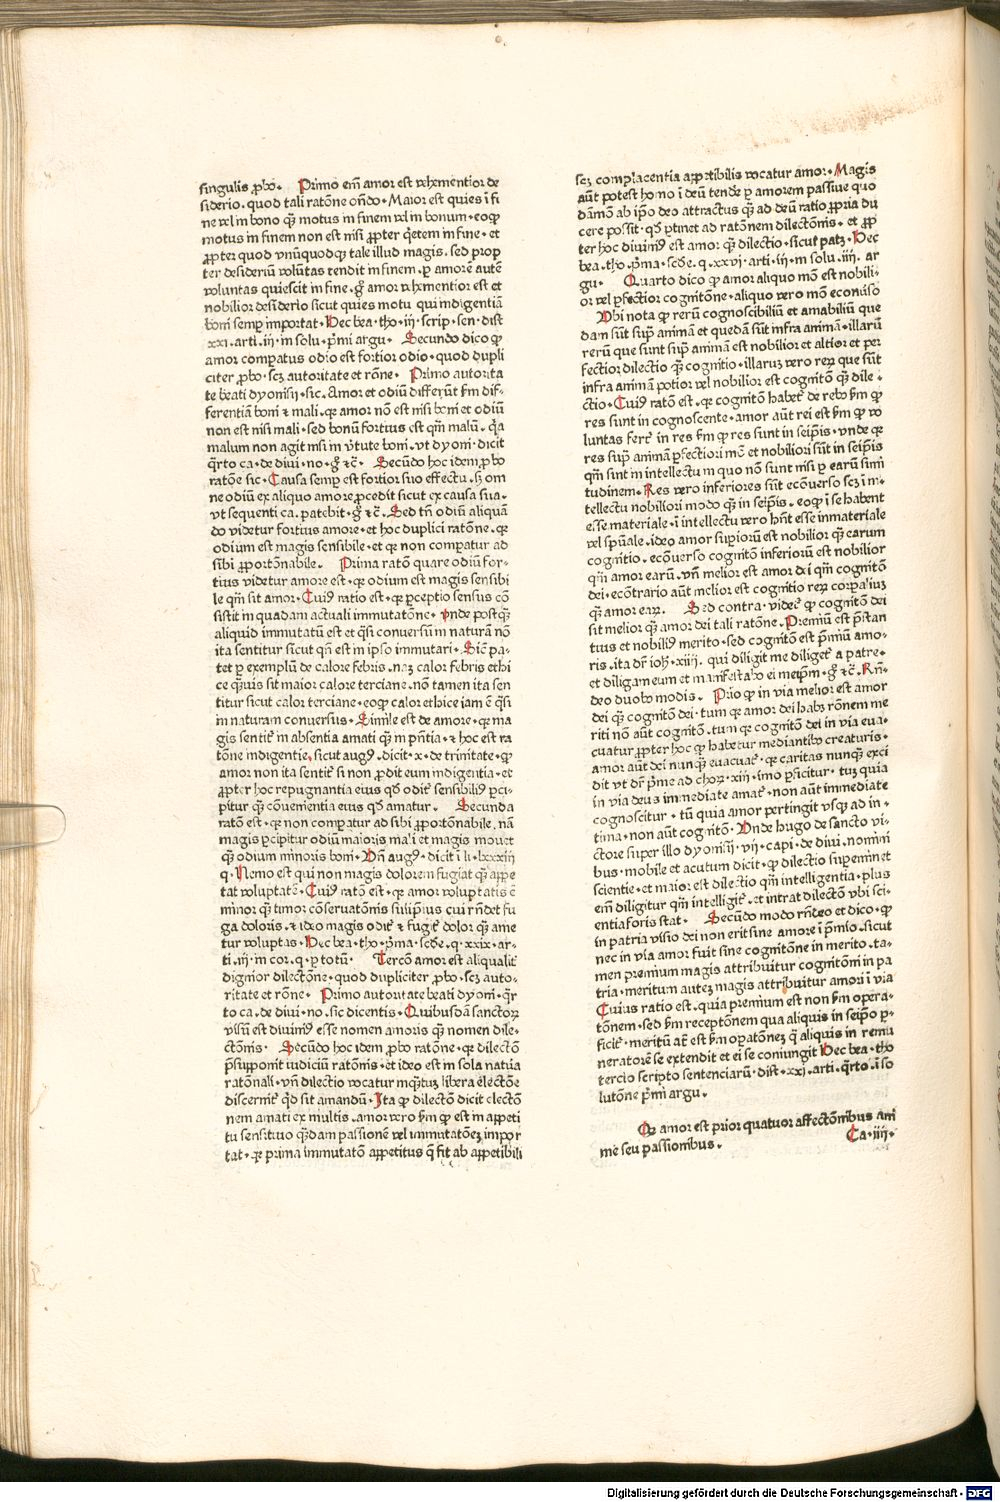 singulis ꝓbo· Primo em̄ amor est vehementior de
siderio· quod tali ratōne on̄do· Maior est quies ī fi
ne vel in bono qȝ motus in finem vel in bonum· eoqꝫ
motus in finem non est nisi ꝓpter qetem in fine· et
ꝓpter quod vnūquodqꝫ tale illud magis· sed prop
ter desideriū volūtas tendit in finem· ꝑ amorē autē
voluntas quiescit in fine· gͦ amor vehementior est et
nobilior desiderio sicut quies motu qui indigentiā
boni semꝑ importat· Hec bea· tho· iij· scrip· sen· dist
xxi· arti· iij· in solu· pͥmi argu· Secundo dico ꝙ
amor compatus odio est fortior odio· quod dupli
citer ꝓbo· scꝫ autoritate et rōne· Primo autorita
te beati dyonisij· sic· Amor et odiū differūt ẜm dif-
ferentiam boni ⁊ mali· qꝛ amor nō est nisi boni et odiū
non est nisi mali· sed bonū fortius est qm̄ malū· qꝛ
malum non agit nisi in ṽtute boni· vt dyoni· dicit
qͣrto ca· de diui· no· gͦ ⁊c̄· Secūdo hoc idem ꝓbo
ratōne sic· Causa semꝑ est fortior suo effectu· sꝫ om
ne odiū ex aliquo amore ꝓcedit sicut ex causa sua·
vt sequenti ca· patebit· gͦ ⁊c̄· Sed tn̄ odiū aliquā
do videtur fortius amore· et hoc duplici ratōne· qꝛ
odium est magis sensibile· et qꝛ non compatur ad
sibi ꝓportōnabile· Prima ratō quare odiū for-
tius videtur amore est· qꝛ odium est magis sensibi
le qm̄ sit amor· Cuiꝰ ratio est· qꝛ ꝑceptio sensus cō
sistit in quadam actuali immutatōne· vnde postqȝ
aliquid immutatū est et qͣsi conuersū in naturā nō
ita sentitur sicut qn̄ est in ipso immutari· Sic̄ pa-
tet ꝑ exemplū de calore febris· nāꝫ calor febris ethi
ce qȝuis sit maior calore terciane· nō tamen ita sen
titur sicut calor terciane· eoqꝫ calor ethice iam ē qͣsi
in naturam conuersus· Simile est de amore· qꝛ ma
gis sentit̃ in absentia amati qȝ in pn̄tia· ⁊ hoc est ra
tōne indigentie· sicut augꝰ· dicit· x· de trinitate· ꝙ
amor non ita sentit̃ si non ꝓdit eum indigentia· et
ꝓpter hoc repugnantia eius qd̄ odit̃ sensibiliꝰ ꝑci-
pitur qȝ cōuenientia eius qd̄ amatur· Secunda
ratō est· qꝛ non compatur ad sibi ꝓportōnabile· nā
magis ꝑcipitur odiū maioris mali et magis mouet
qȝ odium minoris boni· Vn̄ augꝰ· dicit ī li· lxxxiij
q· Nemo est qui non magis dolorem fugiat qȝ appe
tat voluptatē· Cuiꝰ ratō est· qꝛ amor voluptatis ē
minor qȝ timor cōseruatōnis suiipsius cui rn̄det fu
ga doloris· ⁊ ideo magis odit̃ ⁊ fugit̃ dolor qȝ ame
tur voluptas· Hec bea· tho· pͥma· scd̄e· q· xxix· ar-
ti· iij· in cor· q· ꝑ totū· Tercō amor est aliqualit̃
dignior dilectōne· quod dupliciter ꝓbo· scꝫ auto-
ritate et rōne· Primo autoritate beati dyoni· qͣr
to ca· de diui· no· sic dicentis· Quibusdā sanctorꝫ
visū est diuiniꝰ esse nomen amoris qȝ nomen dile-
ctōnis· Secūdo hoc idem ꝓbo ratōne· qꝛ dilectō
p̄supponit iudiciū ratōnis· et ideo est in sola natura
ratōnali· vn̄ dilectio vocatur inqȝtuꝫ libera electōe
discernit̃ qd̄ sit amandū· Ita ꝙ dilectō dicit electō
nem amati ex multis· amor vero ẜm ꝙ est in appeti
tu sensitiuo qͣsdam passionē vel immutatōeꝫ impor
tat· qꝛ prima immutatō appetitus q̄ fit ab appetibili
scꝫ complacentia appetibilis vocatur amor· Magis
aūt potest homo ī deū tende ꝑ amorem passiue quo
dāmō ab ip̄o deo attractus qȝ ad deū ratio ꝓpria du
cere possit· qd̄ ꝑtinet ad ratōnem dilectōnis· et ꝓp
ter hoc diuiniꝰ est amor qȝ dilectio· sicut patꝫ· Hec
bea· tho· pͥma· scd̄e· q· xxvi· arti· iij· in solu· iiij· ar
gu· Quarto dico ꝙ amor aliquo mō est nobili-
or vel ꝑfectior cognitōne· aliquo vero mō econūso
Vbi nota ꝙ rerū cognoscibiliū et amabiliū que
dam sūt supͣ animā et quedā sūt infra animā· illarū
rerū que sunt supͣ animā est nobilior et altior et per
fectior dilectio qȝ cognitio· illaruꝫ vero rerꝫ que sūt
infra animā potior vel nobilior est cognitō qȝ dile-
ctio· Cuiꝰ ratō est· qꝛ cognitō habet̃ de rebꝰ ẜm ꝙ
res sunt in cognoscente· amor aūt rei est ẜm ꝙ vo
luntas fert̃ in res ẜm ꝙ res sunt in seip̄is· vnde qꝛ
res supͣ animā ꝑfectiori mō et nobiliori sūt in seip̄is
qm̄ sint in intellectu in quo nō sunt nisi ꝑ earū simi
tudinem· Res vero inferiores sūt ecōuerso scꝫ ī in-
tellectu nobiliori modo qȝ in seip̄is· eoqꝫ ī se habent
esse materiale· ī intellectu vero hn̄t esse inmateriale
vel spūale· ideo amor supiorū est nobilior qȝ earum
cognitio· ecōuerso cognitō inferiorū est nobilior
qm̄ amor earū· vn̄ melior est amor dei qm̄ cognitō
dei· ecōtrario aūt melior est cognitio rerꝫ corꝑaliuꝫ
qȝ amor earꝫ· Sed contra· videt̃ ꝙ cognitō dei
sit melior qȝ amor dei tali ratōne· Premiū est p̄stan
tius et nobiliꝰ merito· sed cognitō est p̄miū amo-
ris· ita dr̄ ioh̄· xiiij· qui diligit me diliget̃ a patre·
et diligam eum et manifestabo ei meip̄m· gͦ ⁊c̄· Rn̄-
deo duobꝰ modis· Prīo ꝙ in via melior est amor
dei qȝ cognitō dei· tum qꝛ amor dei habꝫ rōnem me
riti nō aūt cognitō· tum qꝛ cognitō dei in via eua-
cuatur ꝓpter hoc ꝙ habetur mediantibꝰ creaturis·
amor aūt dei nunqȝ euacuat̃· qꝛ caritas nunqȝ exci
dit vt dr̄ prime ad chorꝫ· xiij· imo ꝑficitur· tuꝫ quia
in via deus immediate amat̃· non aūt immediate
cognoscitur· tū quia amor pertingit vsqꝫ ad in-
tima· non aūt cognitō· Vnde hugo de sancto vi-
ctore super illo dyonisij· vij· capi· de diui· nomini
bus· mobile et acutum dicit· ꝙ dilectio supeminet
scientie· et maior est dilectio qm̄ intelligentia· plus
em̄ diligitur qm̄ intelligit̃· et intrat dilectō vbi sci-
entia foris stat· Secūdo modo rn̄deo et dico· ꝙ
in patria visio dei non erit sine amore ī p̄mio· sicut
nec in via amor fuit sine cognitōne in merito· ta-
men premium magis attribuitur cognitōni in pa
tria· meritum auteꝫ magis attribuitur amori ī via
Cuius ratio est· quia premium est non ẜm opera-
tōnem· sed ẜm receptōnem qua aliquis in seip̄o ꝑ-
ficit̃· meritū aūt est ẜm oꝑatōneꝫ qͣ aliquis in remu
neratorē se extendit et ei se coniungit Hec bea· tho
tercio scripto sentenciarū· dist· xxi· arti· qͣrto· ī so
lutōne pͥmi argu·
Qꝛ amor est prior quatuor affectōnibus ani
me seu passionibus· Ca· iiij·
Digitalisierung gefördert durch die Deutsche Forschungsgemeinschaft - DFG